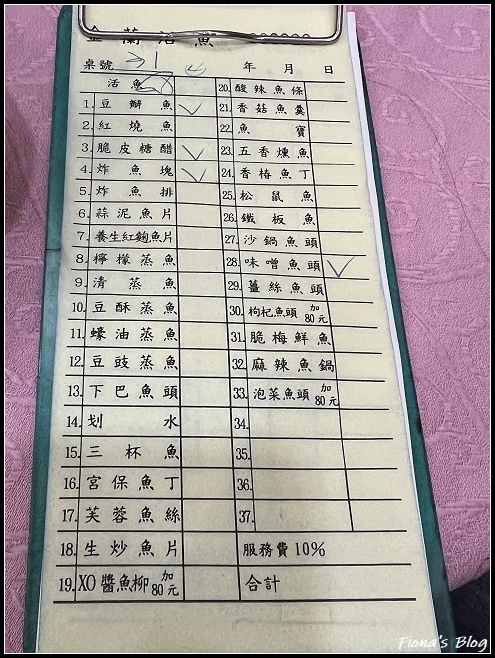 金蘭活魚
桌號 31 年 月 日
活魚
1. 豆瓣魚
2. 紅燒魚
3. 脆皮糖醋
4. 炸魚塊
5. 炸魚排
6. 蒜泥魚片
7. 養生紅麴魚片
8. 檸檬蒸魚
9. 清蒸魚
10. 豆酥蒸魚
11. 蠔油蒸魚
12. 豆豉蒸魚
13. 下巴魚頭
14. 划水
15. 三杯魚
16. 宮保魚丁
17. 芙蓉魚絲
18. 生炒魚片
19. XO醬魚柳 加80元
20. 酸辣魚條
21. 香菇魚羹
22. 魚寶
23. 五香燻魚
24. 香椿魚丁
25. 松鼠魚
26. 鐵板魚
27. 沙鍋魚頭
28. 味噌魚頭
29. 薑絲魚頭
30. 枸杞魚頭 加80元
31. 脆梅鮮魚
32. 麻辣魚鍋
33. 泡菜魚頭 加80元
34.
35.
36.
37.
服務費10%
合計
Fiona's Blog